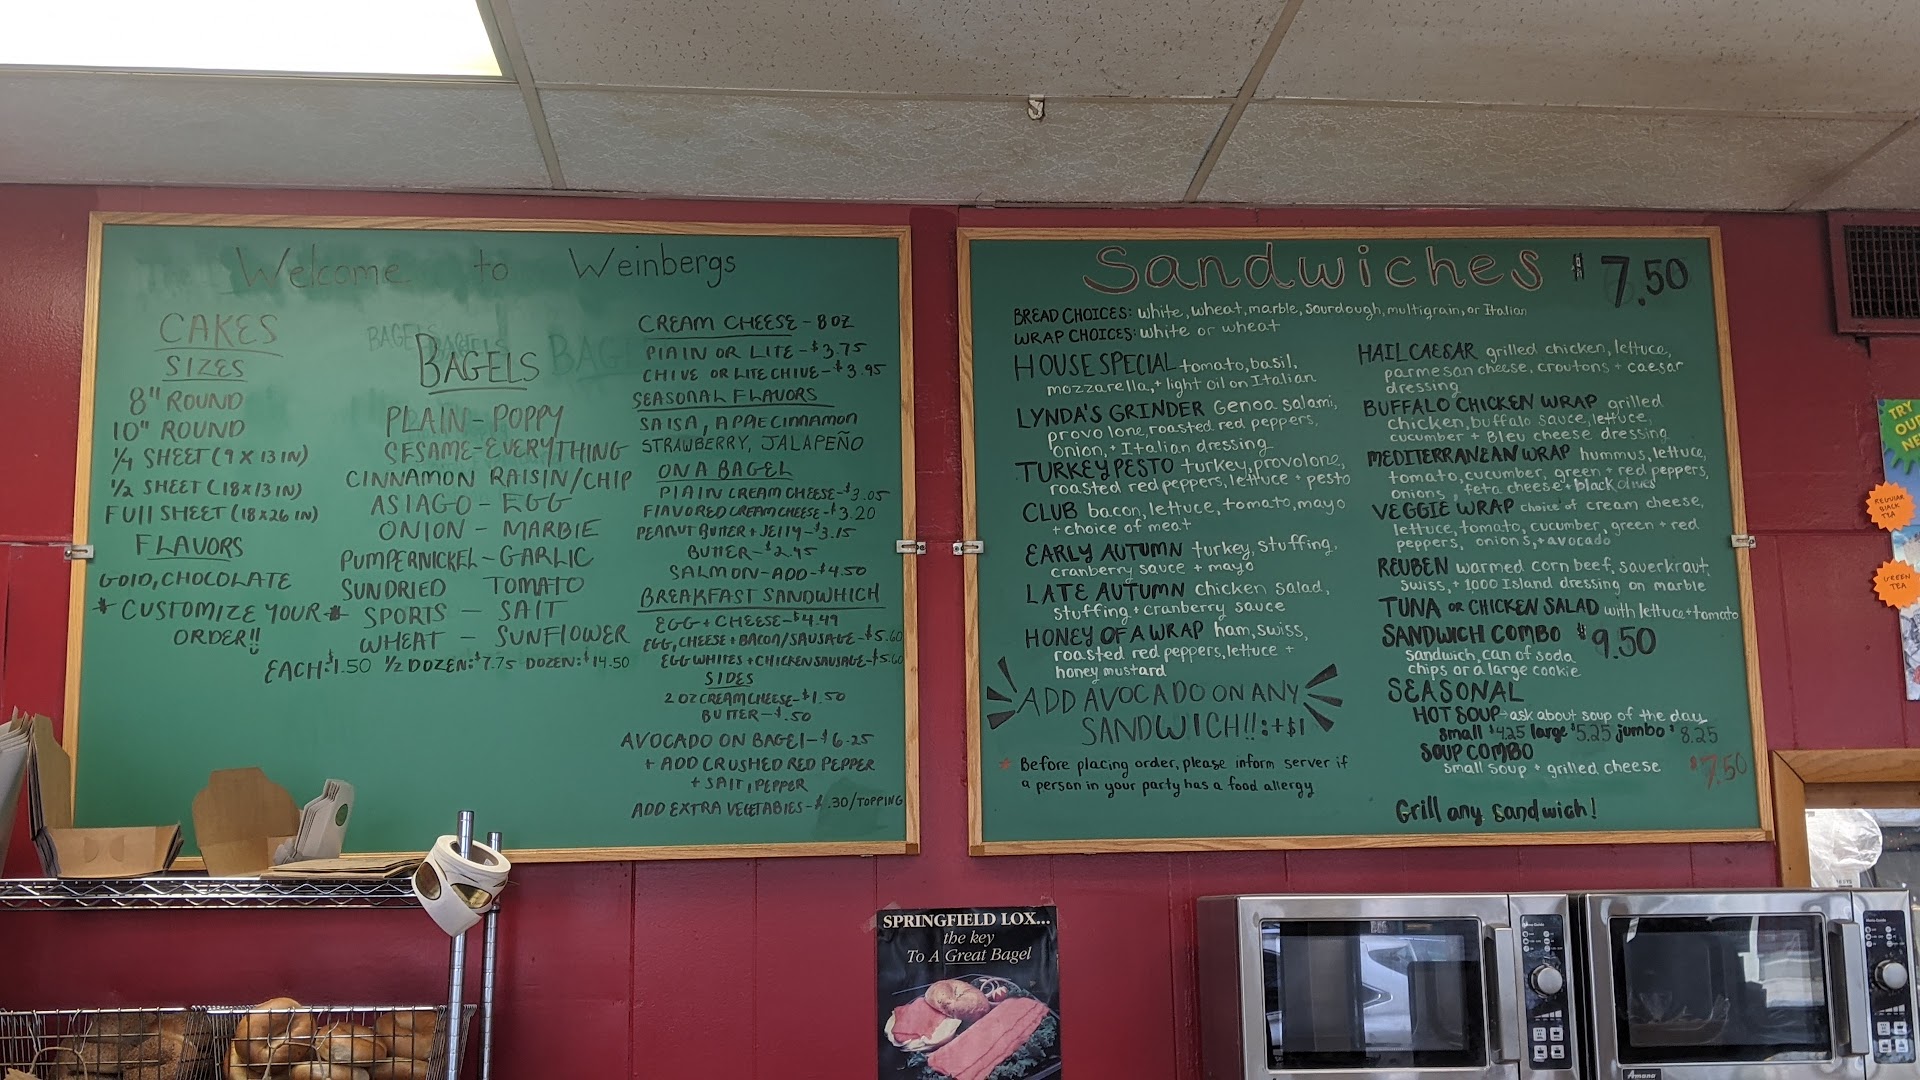 Welcome to Weinbergs
CAKES
SIZES
8" ROUND
10" ROUND
1/4 SHEET (9 X 13 IN)
1/2 SHEET (18X13 IN)
FULL SHEET (18X26 IN)
FLAVORS
GOLD, CHOCOLATE
* CUSTOMIZE YOUR *
ORDER!!
BAGELS
PLAIN - POPPY
SESAME - EVERYTHING
CINNAMON RAISIN/CHIP
ASIAGO - EGG
ONION - MARBLE
PUMPERNICKEL - GARLIC
SUNDRIED TOMATO
SPORTS - SALT
WHEAT - SUNFLOWER
EACH: $1.50 1/2 DOZEN: $7.75 DOZEN: $14.50
CREAM CHEESE - 8 OZ
PLAIN OR LITE - $3.75
CHIVE OR LITE CHIVE - $3.95
SEASONAL FLAVORS
SALSA, APPLE CINNAMON
STRAWBERRY, JALAPEÑO
ON A BAGEL
PLAIN CREAM CHEESE - $3.05
FLAVORED CREAM CHEESE - $3.20
PEANUT BUTTER + JELLY - $3.15
BUTTER - $2.45
SALMON - ADD - $4.50
BREAKFAST SANDWHICH
EGG + CHEESE - $4.49
EGG, CHEESE + BACON/SAUSAGE - $5.60
EGG WHITES + CHICKEN SAUSAGE - $5.60
SIDES
2 OZ CREAM CHEESE - $1.50
BUTTER - $.50
AVOCADO ON BAGEL - $6.25
+ ADD CRUSHED RED PEPPER
+ SALT, PEPPER
ADD EXTRA VEGETABLES - $.30/TOPPING
Sandwiches $7.50
BREAD CHOICES: white, wheat, marble, sourdough, multigrain, or Italian
WRAP CHOICES: white or wheat
HOUSE SPECIAL tomato, basil,
mozzarella, + light oil on Italian
LYNDA'S GRINDER Genoa salami,
provolone, roasted red peppers,
onion, + Italian dressing
TURKEY PESTO turkey, provolone,
roasted red peppers, lettuce + pesto
CLUB bacon, lettuce, tomato, mayo
+ choice of meat
EARLY AUTUMN turkey, stuffing,
cranberry sauce + mayo
LATE AUTUMN chicken salad,
stuffing + cranberry sauce
HONEY OF A WRAP ham, swiss,
roasted red peppers, lettuce +
honey mustard
ADD AVOCADO ON ANY
SANDWICH!!: +$1
* Before placing order, please inform server if
a person in your party has a food allergy
HAIL CAESAR grilled chicken, lettuce,
parmesan cheese, croutons + caesar
dressing
BUFFALO CHICKEN WRAP grilled
chicken, buffalo sauce, lettuce,
cucumber + Bleu cheese dressing
MEDITERRANEAN WRAP hummus, lettuce,
tomato, cucumber, green + red peppers,
onions, feta cheese + black olives
VEGGIE WRAP choice of cream cheese,
lettuce, tomato, cucumber, green + red
peppers, onions, + avocado
REUBEN warmed corn beef, sauerkraut,
swiss, + 1000 Island dressing on marble
TUNA OR CHICKEN SALAD with lettuce + tomato
SANDWICH COMBO $9.50
sandwich, can of soda
chips or a large cookie
SEASONAL
HOT SOUP - ask about soup of the day
small $4.25 large $5.25 jumbo $8.25
SOUP COMBO
small soup + grilled cheese $7.50
Grill any sandwich!
TRY
OUR
REGULAR
BLACK
TEA
GREEN
TEA
SPRINGFIELD LOX...
the key
To A Great Bagel
Amana